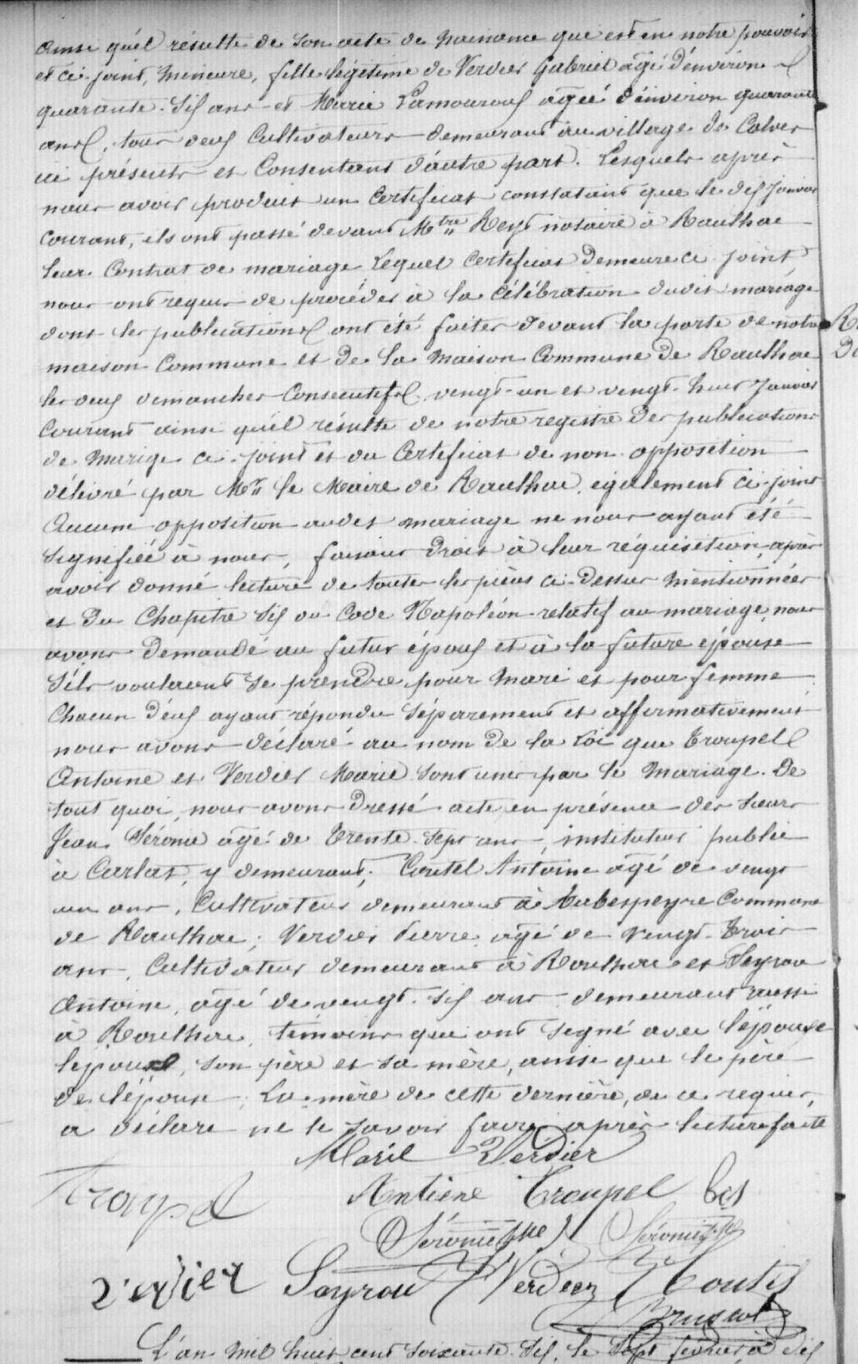 ainsi qu'il résulte de son acte de naissance que est en notre pouvoir
et ci joint, mineure, fille légitime de Verdier Gabriel âgé d'environ
quarante-six ans et Marie Lamouroux âgée d'environ quarante
ans, tous deux cultivateurs demeurant au village de Calves
ici présents et consentant d'autre part. Lesquels après
nous avoir produit un certificat constatant que le dix janvier
courant, ils ont passé devant Mtre Reyt notaire à Raulhac
leur contrat de mariage lequel certificat demeure ci joint
nous ont requis de procéder à la célébration dudit mariage
dont les publications ont été faites devant la porte de notre
maison commune et de la maison commune de Raulhac
les deux dimanches consécutifs vingt-un et vingt-huit janvier
courant ainsi qu'il résulte de notre registre des publications
de marige ci-joint et du certificat de non opposition
délivré par Mr le Maire de Raulhac, également ci-joint
Aucune opposition audit mariage ne nous ayant été
signifiée à nous, faisant droit à leur réquisition, après
avoir donné lecture de toutes les pièces ci-dessus mentionnées
et du Chapitre six du Code Napoléon relatif au mariage, nous
avons demandé au futur époux et à la future épouse
s'ils voulaient se prendre pour mari et pour femme
chacun d'eux ayant répondu séparément et affirmativement
nous avons déclaré au nom de la Loi que Troupel
Antoine et Verdier Marie sont unis par le mariage. De
tout quoi, nous avons dressé acte en présence des sieurs
Jean Sérome âgé de trente-sept ans, instituteur public
à Carlat, y demeurant; Coutel Antoine âgé de vingt
un ans, cultivateur demeurant à Aubespeyre commune
de Raulhac; Verdier Pierre âgé de vingt-trois
ans, cultivateur demeurant à Raulhac et Seyrou
Antoine, âgé de vingt-six ans demeurant aussi
à Raulhac, témoins que ont signé avec l'épouse
l'époux, son père et sa mère, ainsi que le père
de l'épouse; La mère de cette dernière, de ce requise,
a déclaré ne le savoir faire après lecture faite
Marie Verdier
Troupel Antoine Troupel
Sérome Sérome
Verdier Seyrou Verdier
L'an mil huit cent soixante-six, le sept février à dix